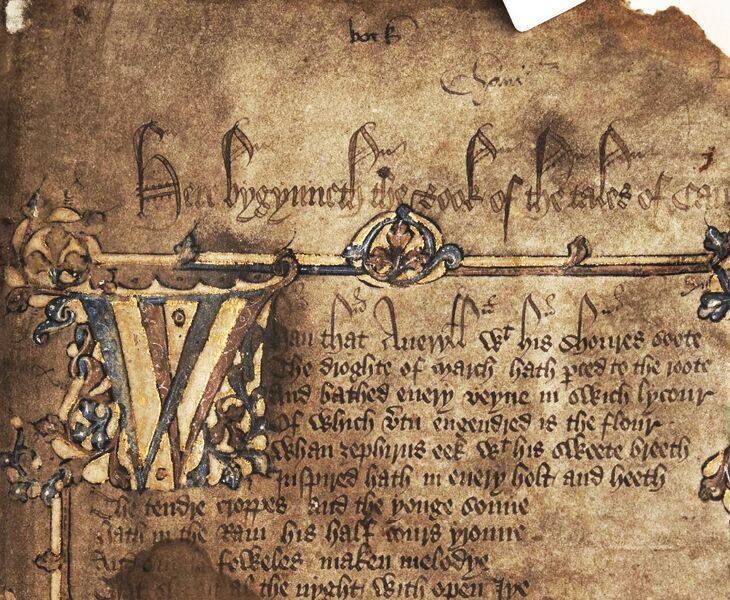 book
Heere bygynneth the Book of the tales of Cau
Whan that Aueryll wt his shoures soote
The droghte of march hath pced to the roote
And bathed euery veyne in swich lycour
Of which vtu engendred is the flour
Whan zephirus eek wt his sweete breeth
Inspired hath in euery holt and heeth
The tendre croppes and the yonge sonne
hath in the Ram his half cours yronne
And foweles maken melodye
al the nyght with open Iye